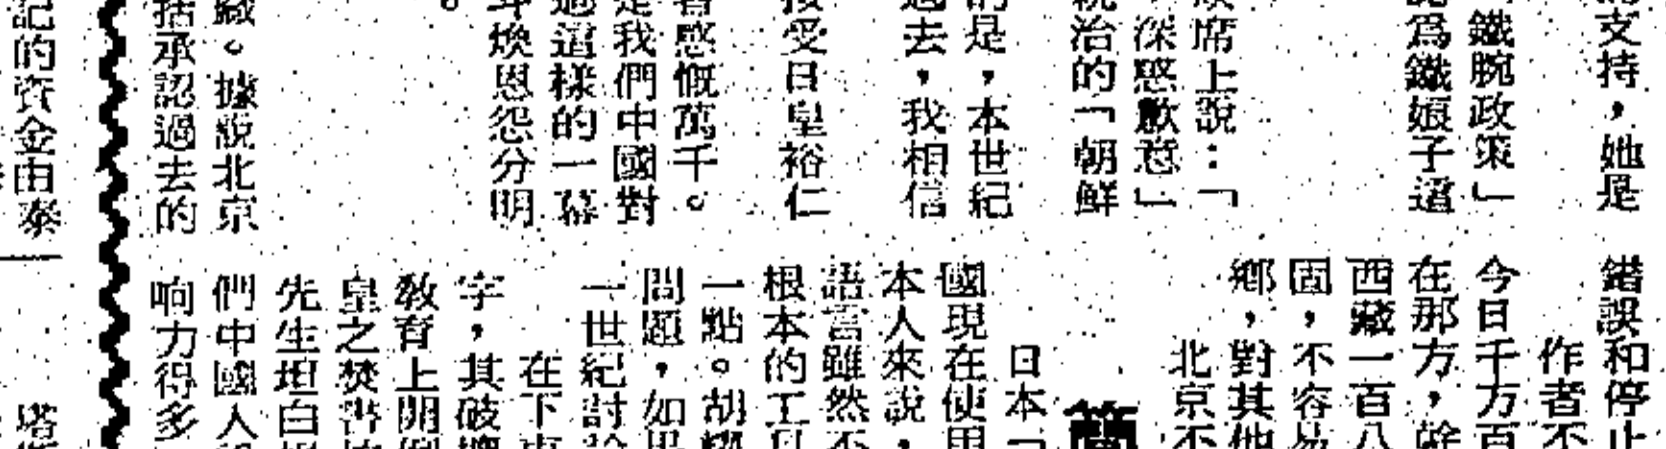 支持，她是
鐵腕政策」
爲鐵娘子這
席上說：「
深感歉意」
治的「朝鮮
的是，本世紀
過去，我相信
受日皇裕仁
感慨萬千。
是我們中國對
過這樣的一幕
煥恩怨分明
。
藏。據說北京
括承認過去的
錯誤和停止
作者不
今日千方百
在那方，
西藏一百八
固，不容易
鄉，對其他
北京不
簡
日本「
國現在使用
本人來說，
語言雖然不
根本的工具
一點。胡耀
問題，如果
一世紀討論
在下
字，其破壞
教育上開倒
皇之焚書
先生坦白
們中國人
响力得多
的資金由泰
塔